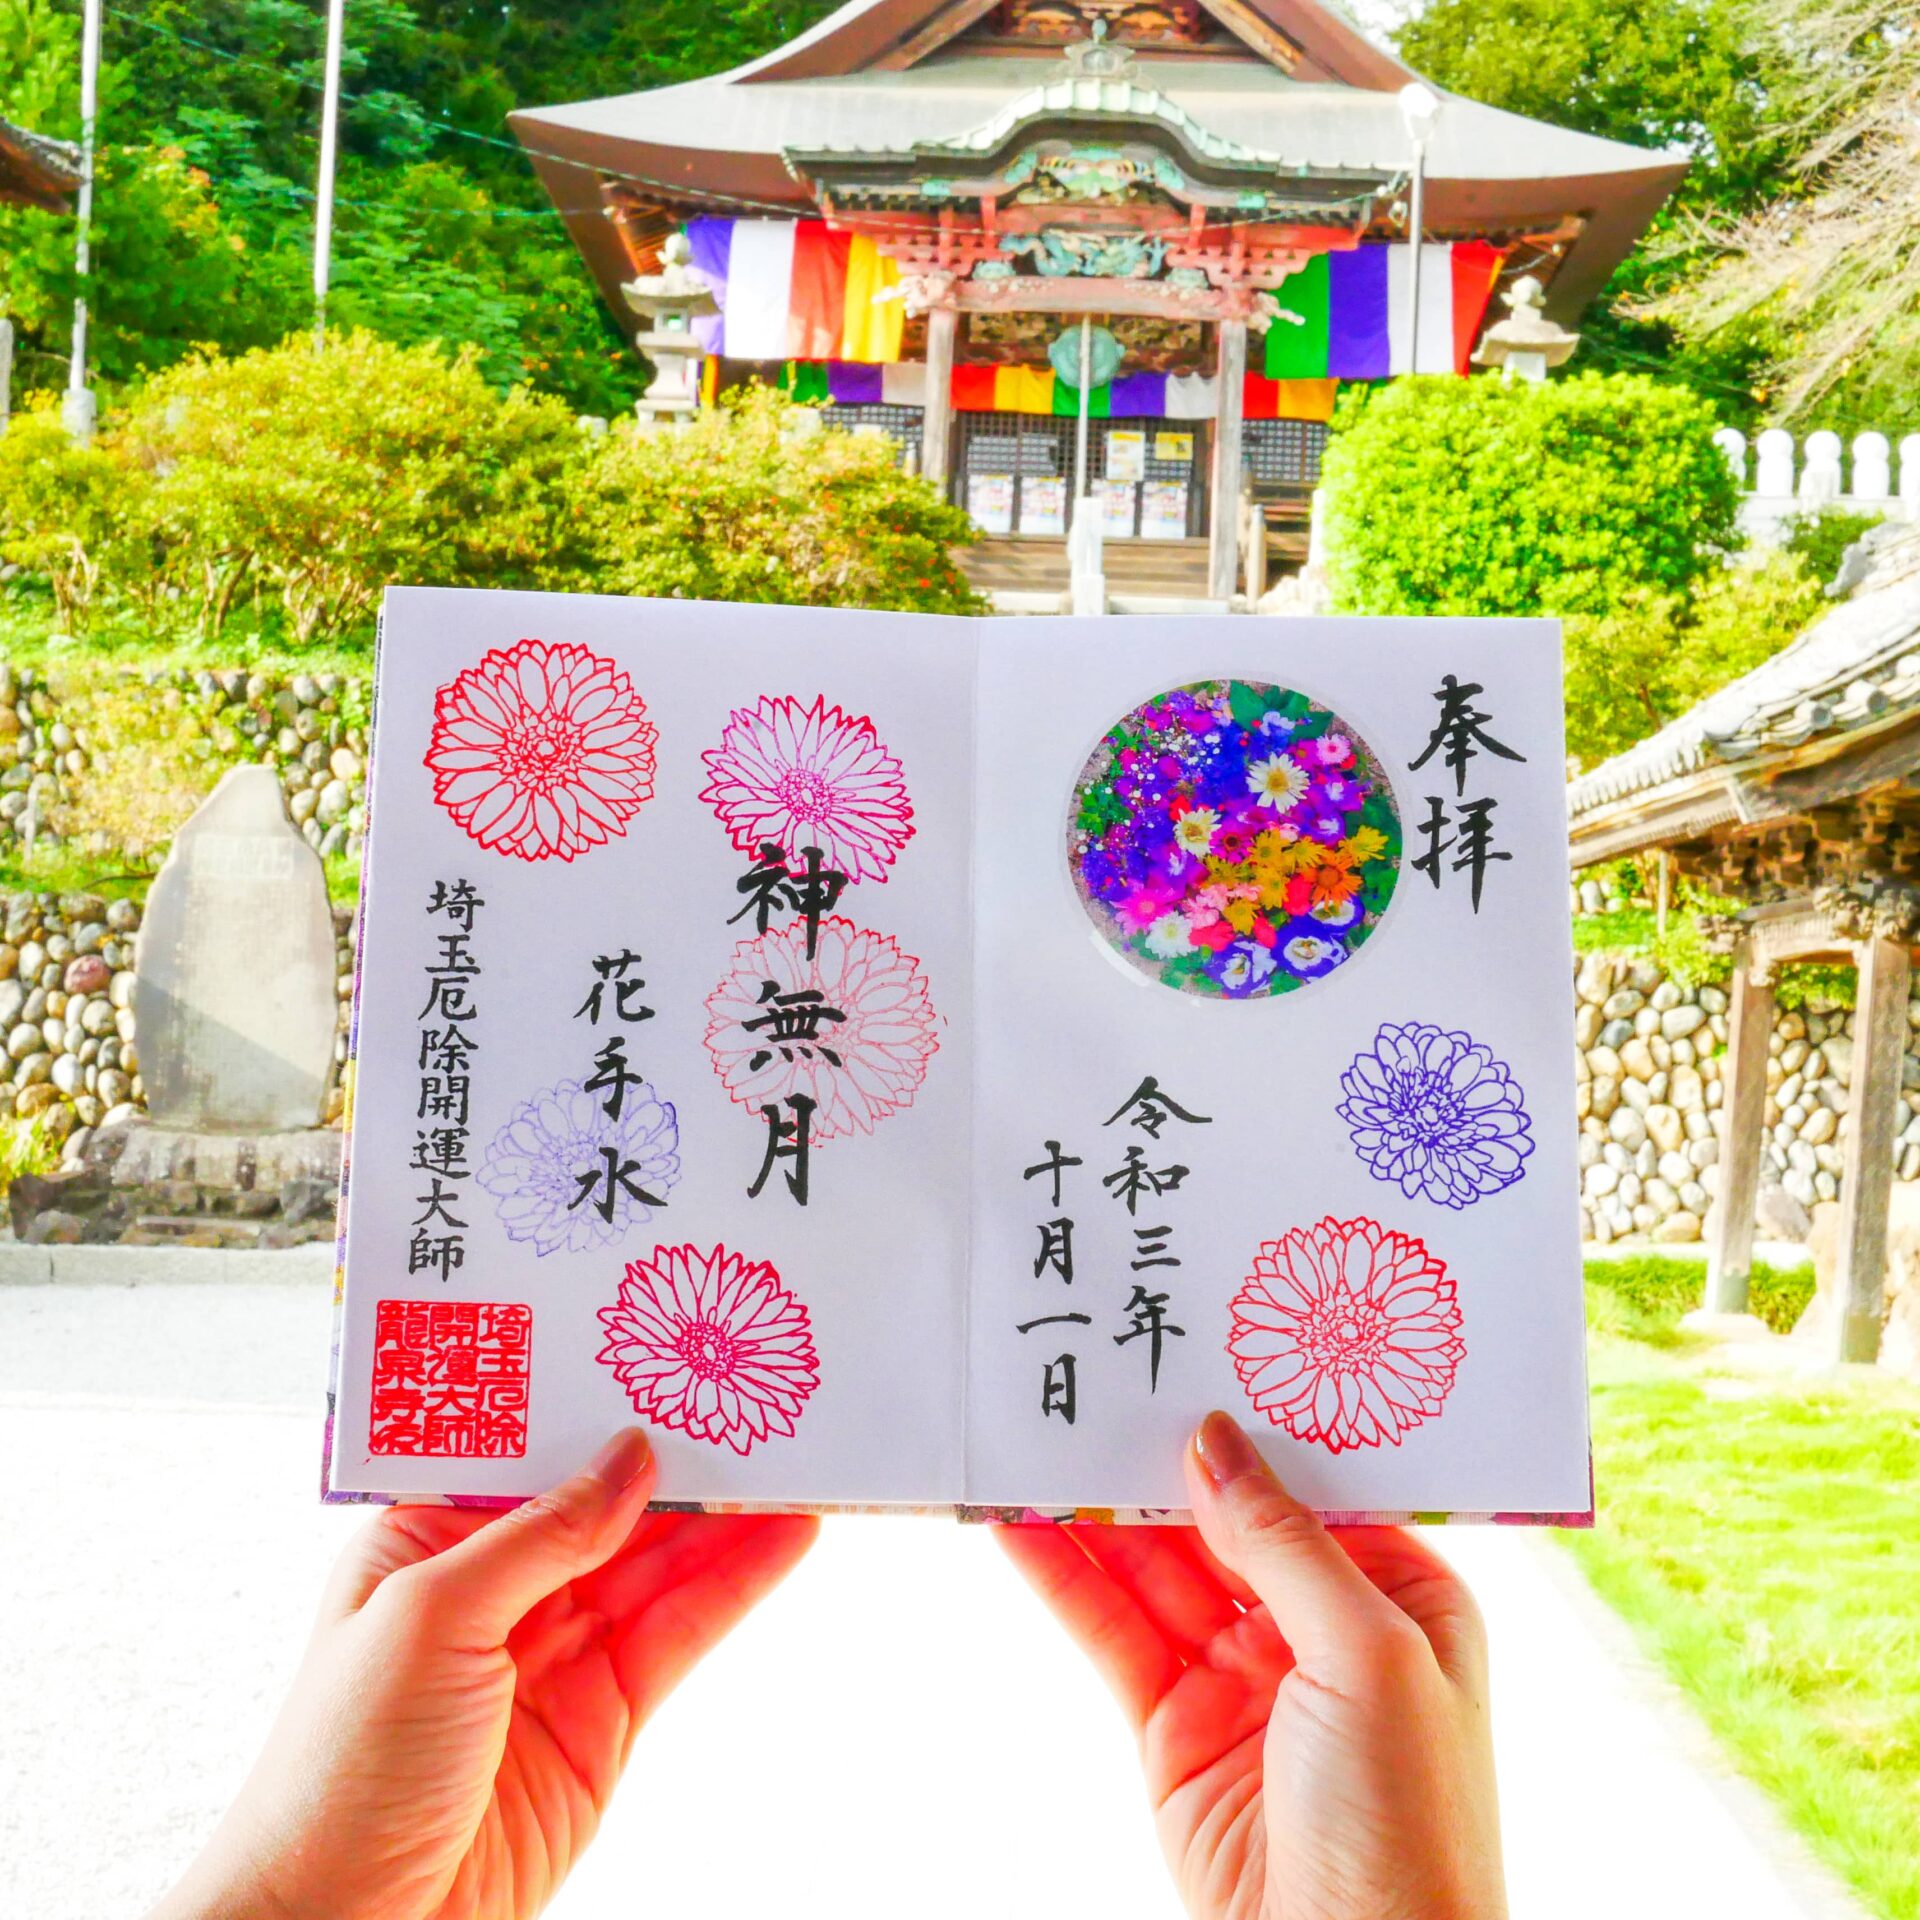 奉拝
令和三年
十月一日
神無月
花手水
埼玉厄除開運大師
埼玉厄除
開運大師
龍泉寺